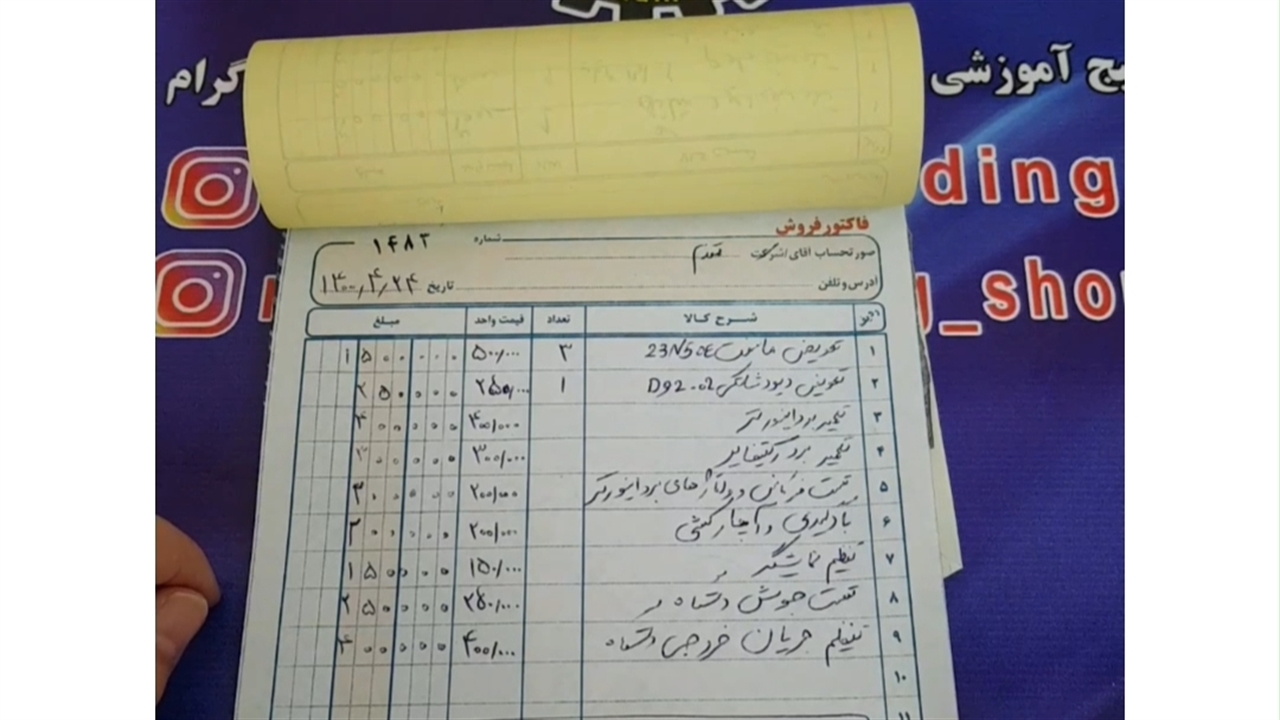 یج آموزشی
گرام
ding
g_sho
فاکتور فروش
شماره ۱۴۸۳
صورتحساب آقای/شرکت
آدرس و تلفن
تاریخ ۱۴۰۰٫۴٫۲۴
ردیف شرح کالا تعداد قیمت واحد مبلغ
۱ تعویض ماسفت 23N50E ۳ ۵۰۰/۰۰۰ ۱۵۰۰۰۰۰
۲ تعویض دیود شاتکی D92-02 ۱ ۲۵۰/۰۰۰ ۲۵۰۰۰۰
۳ تعمیر برد اینورتر ۴۰۰/۰۰۰ ۴۰۰۰۰۰
۴ تعمیر برد رکتیفایر ۳۰۰/۰۰۰ ۳۰۰۰۰۰
۵ تست فرکانس و ولتاژهای برد اینورتر ۲۰۰/۰۰۰
۶ بادگیری و آچارکشی ۲۰۰/۰۰۰ ۲۰۰۰۰۰
۷ تنظیم نمایشگر ۱۵۰/۰۰۰ ۱۵۰۰۰۰
۸ تست جوش دستگاه ۲۵۰/۰۰۰ ۲۵۰۰۰۰
۹ تنظیم جریان خروجی دستگاه ۴۰۰/۰۰۰ ۴۰۰۰۰۰
۱۰
۱۱